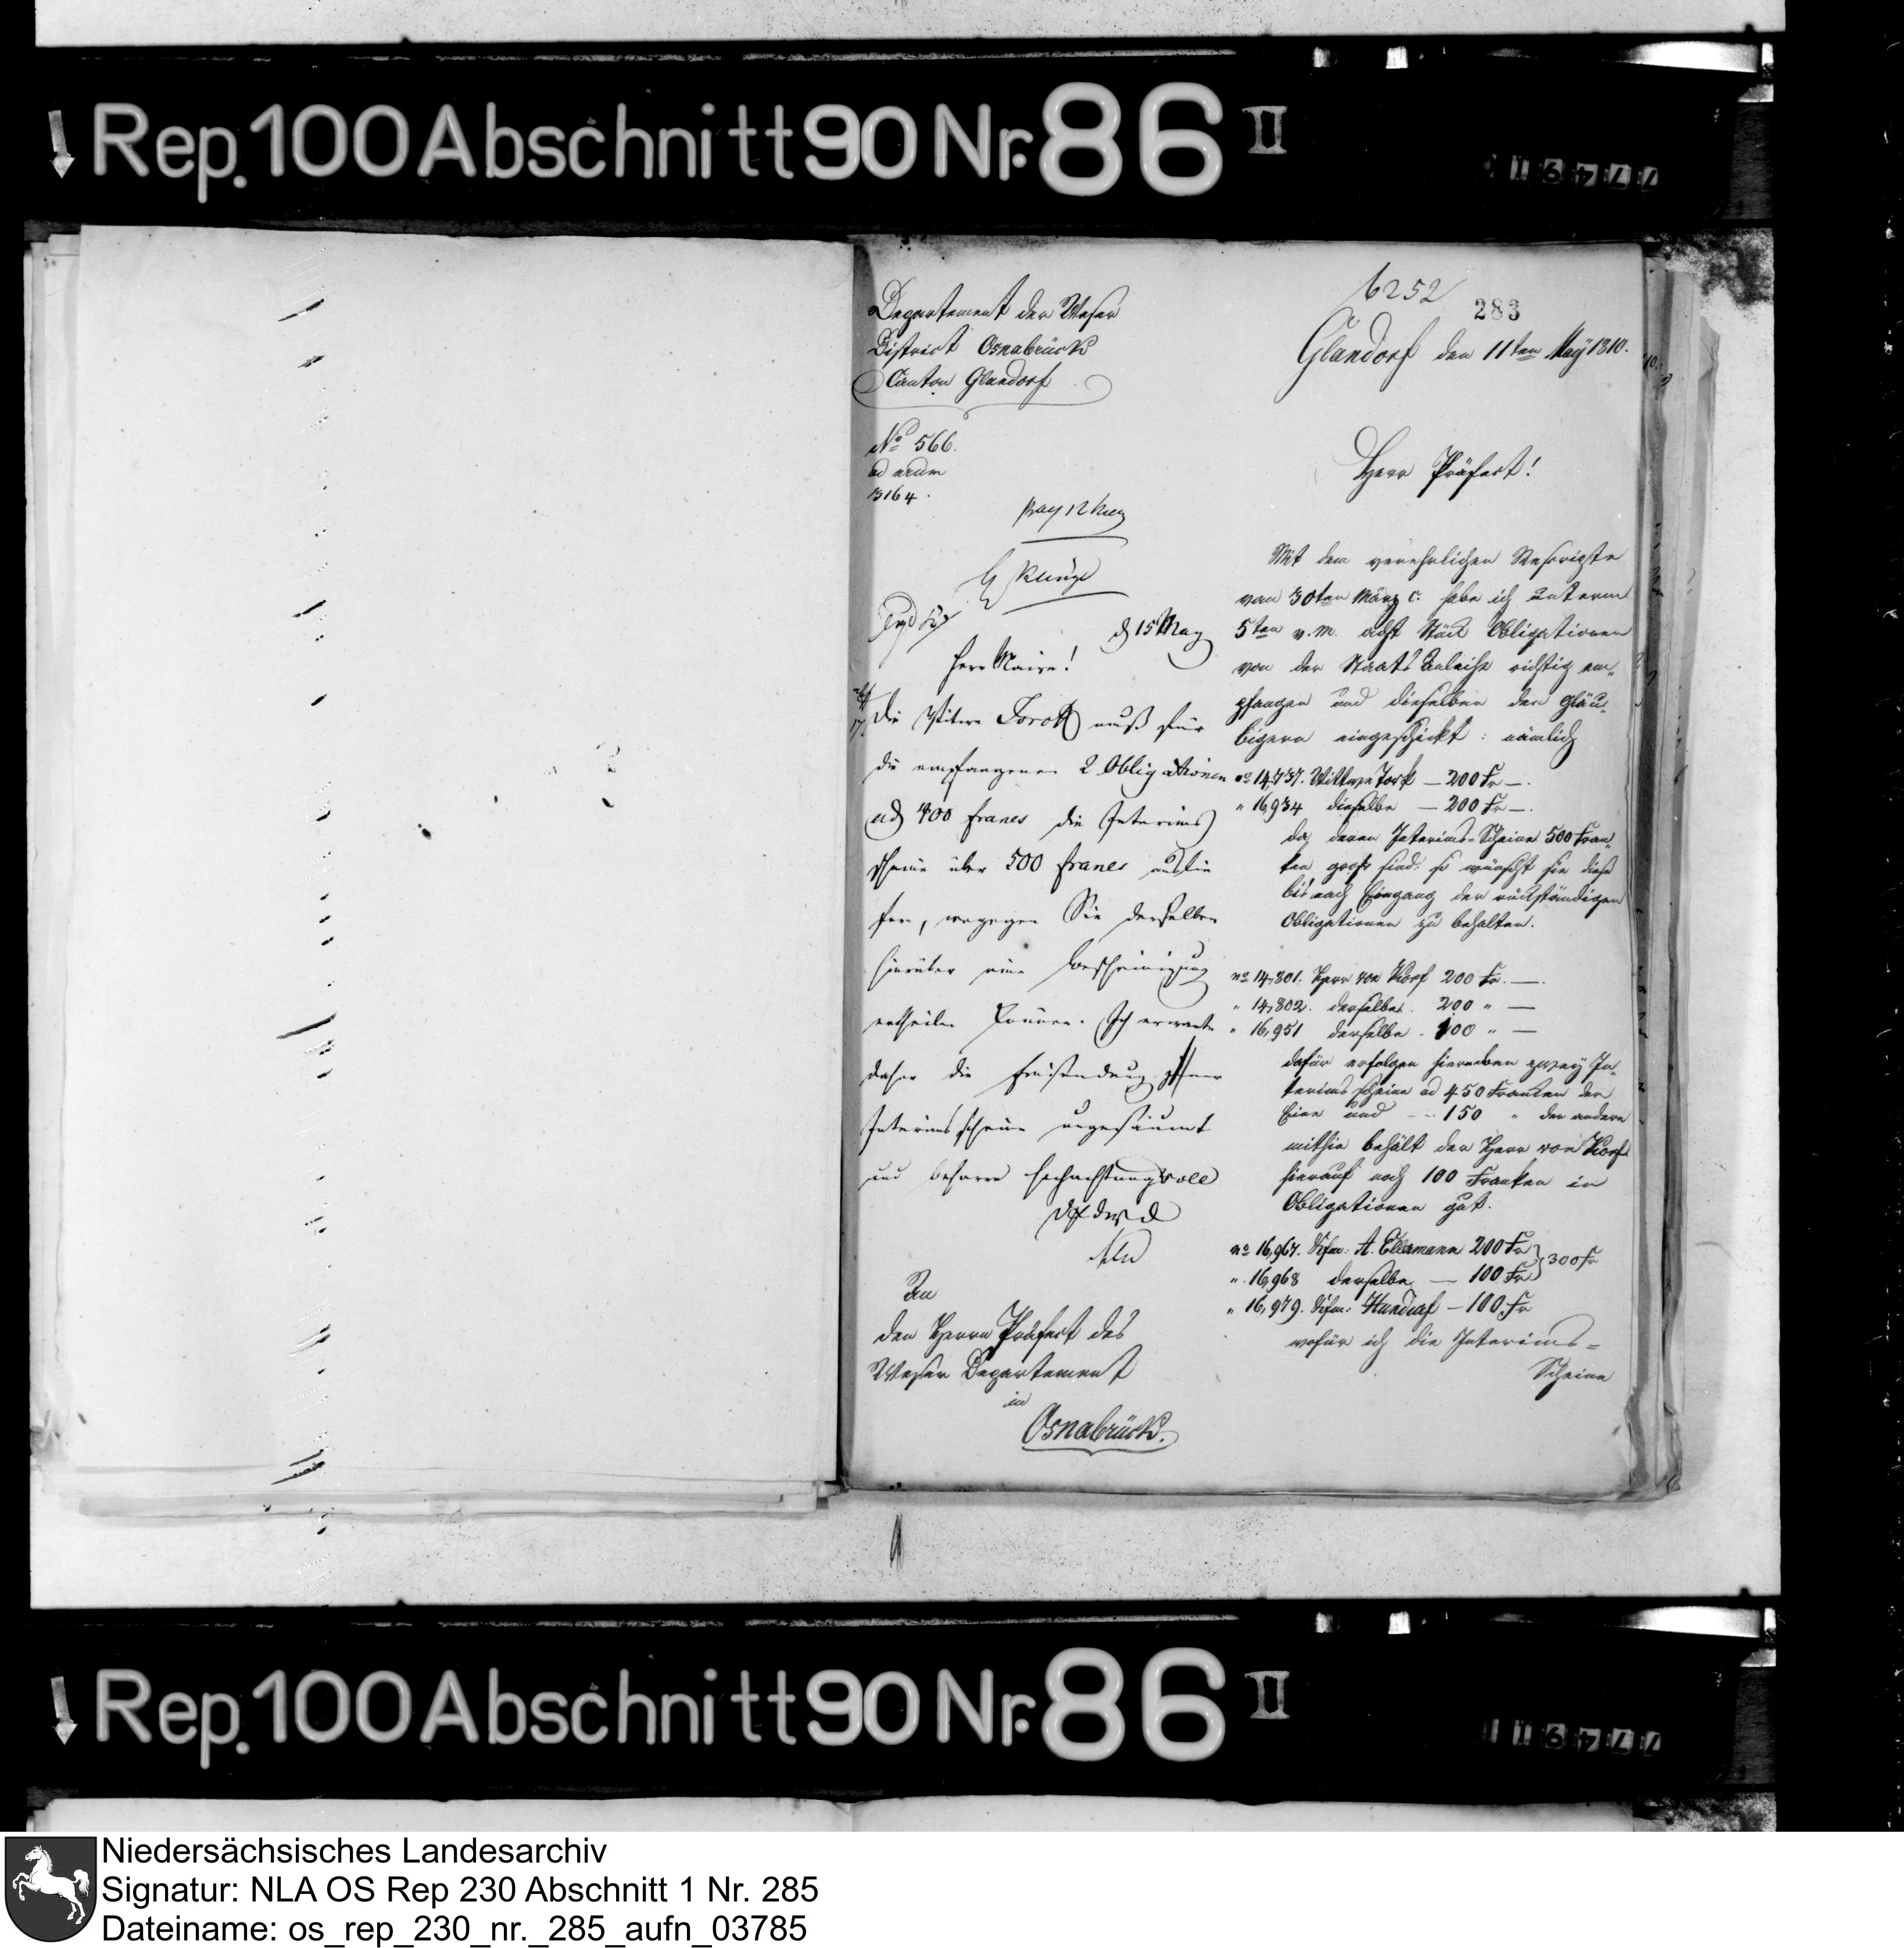 Rep. 100 Abschnitt 90 Nr. 86 II
Departement der Weser
District Osnabrück
Canton Glandorf
6252
283
Glandorf den 11ten May 1810.
No 566.
ad num
3164.
Herr Präfect!
Mit dem verehrlichen Rescripte
vom 30ten März c. habe ich unterm
5ten v. M. acht Stück Obligationen
von der Staats Anleihe richtig em-
pfangen und dieselben den Gläu-
bigern eingeschickt: nämlich
no 14,737. Wittwe Tork — 200 Fr —.
" 16,934 dieselbe — 200 Fr —.
da deren Interims-Scheine 500 Fran-
ken groß sind: so wünscht sie diese
bis nach Eingang der rückständigen
Obligationen zu behalten.
no 14,801. Herr von Korf 200 Fr. —.
" 14,802. derselbe. 200 " —
" 16,951 derselbe - 100 " —
dafür erfolgen hierneben zwey In-
terims scheine ad 450 Franken der
Eine und - - 150 " der andere
mithin behält der Herr von Korf
hierauf noch 100 Franken in
Obligationen gut.
no 16,967. A. Ellermann 200 Fr } 300 Fr
" 16,968 derselbe — 100 Fr
" 16,979. — 100. Fr
wofür ich die Interims-
Scheine
d 15 May
Herr Maire!
Die Witwe Torck muß für
die empfangenen 2 Obligationen
ad 400 francs die Interims
scheine über 500 francs auslie
fern, wogegen Sie derselben
hierüber eine Bescheinigung
ertheilen können. Ich erwarte
daher die Einsendung jener
Interimsscheine ungesäumt
und beharre hochachtungsvoll
An
den Herrn Präfect des
Weser Departement
in
Osnabrück.
Rep. 100 Abschnitt 90 Nr. 86 II
Niedersächsisches Landesarchiv
Signatur: NLA OS Rep 230 Abschnitt 1 Nr. 285
Dateiname: os_rep_230_nr._285_aufn_03785